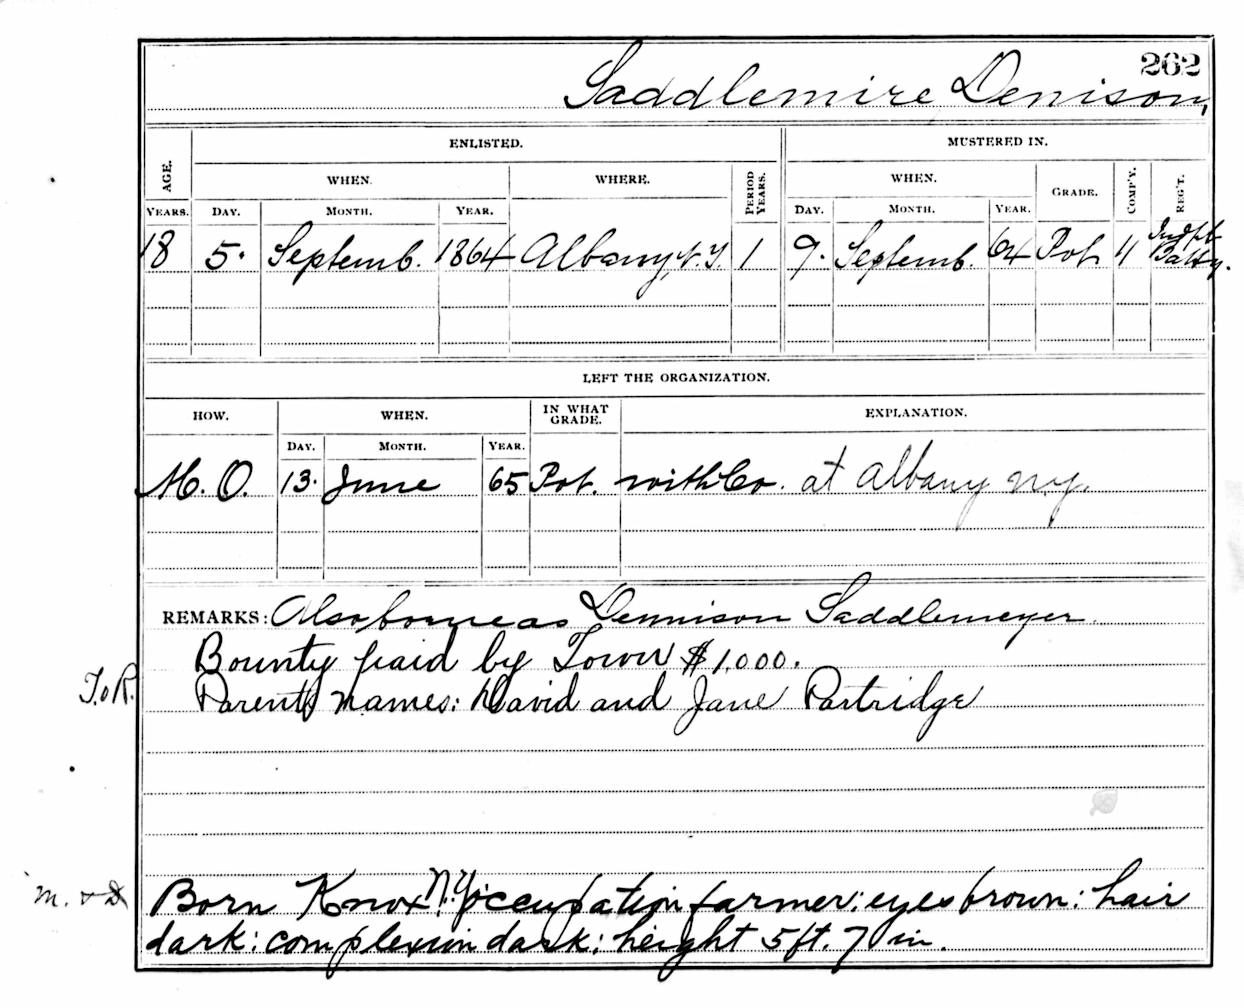 262
Saddlemire Denison,
ENLISTED. MUSTERED IN.
AGE. WHEN. WHERE. PERIOD YEARS. WHEN. GRADE. COMP'Y. REG'T.
YEARS. DAY. MONTH. YEAR. DAY. MONTH. YEAR.
18 5. Septemb. 1864 Albany, N.Y. 1 9. Septemb. 64 Pvt 11 Indpt Batty.
LEFT THE ORGANIZATION.
HOW. WHEN. IN WHAT GRADE. EXPLANATION.
DAY. MONTH. YEAR.
M. O. 13. June 65 Pvt. with Co. at Albany N.Y.
REMARKS: Also borne as Dennison Saddlemeyer.
Bounty paid by Town $1,000.
T.o R. Parents names: David and Jane Partridge
m. & D Born Knox N.Y.; occupation farmer; eyes brown; hair
dark; complexion dark; height 5 ft. 7 in.